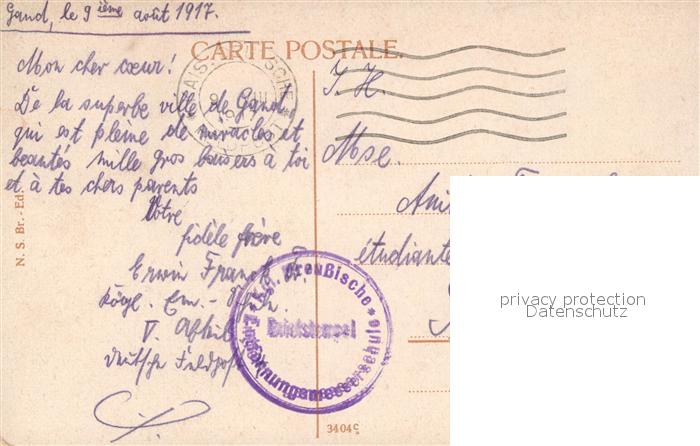 Gand, le 9 ième août 1917.
CARTE POSTALE.
Mon cher cœur!
De la superbe ville de Gand
qui est pleine de miracles et
beautés mille gros baisers à toi
et à tes chers parents
Votre
fidèle frère
Erwin Franck
Königl. Em.-
V.
deutsche Feldpost
N. S. Br. - Ed.
J. H.
Mse.
étudiante
Kgl. Preußische
Briefstempel
Entfernungsmesserschule
3404c
privacy protection
Datenschutz